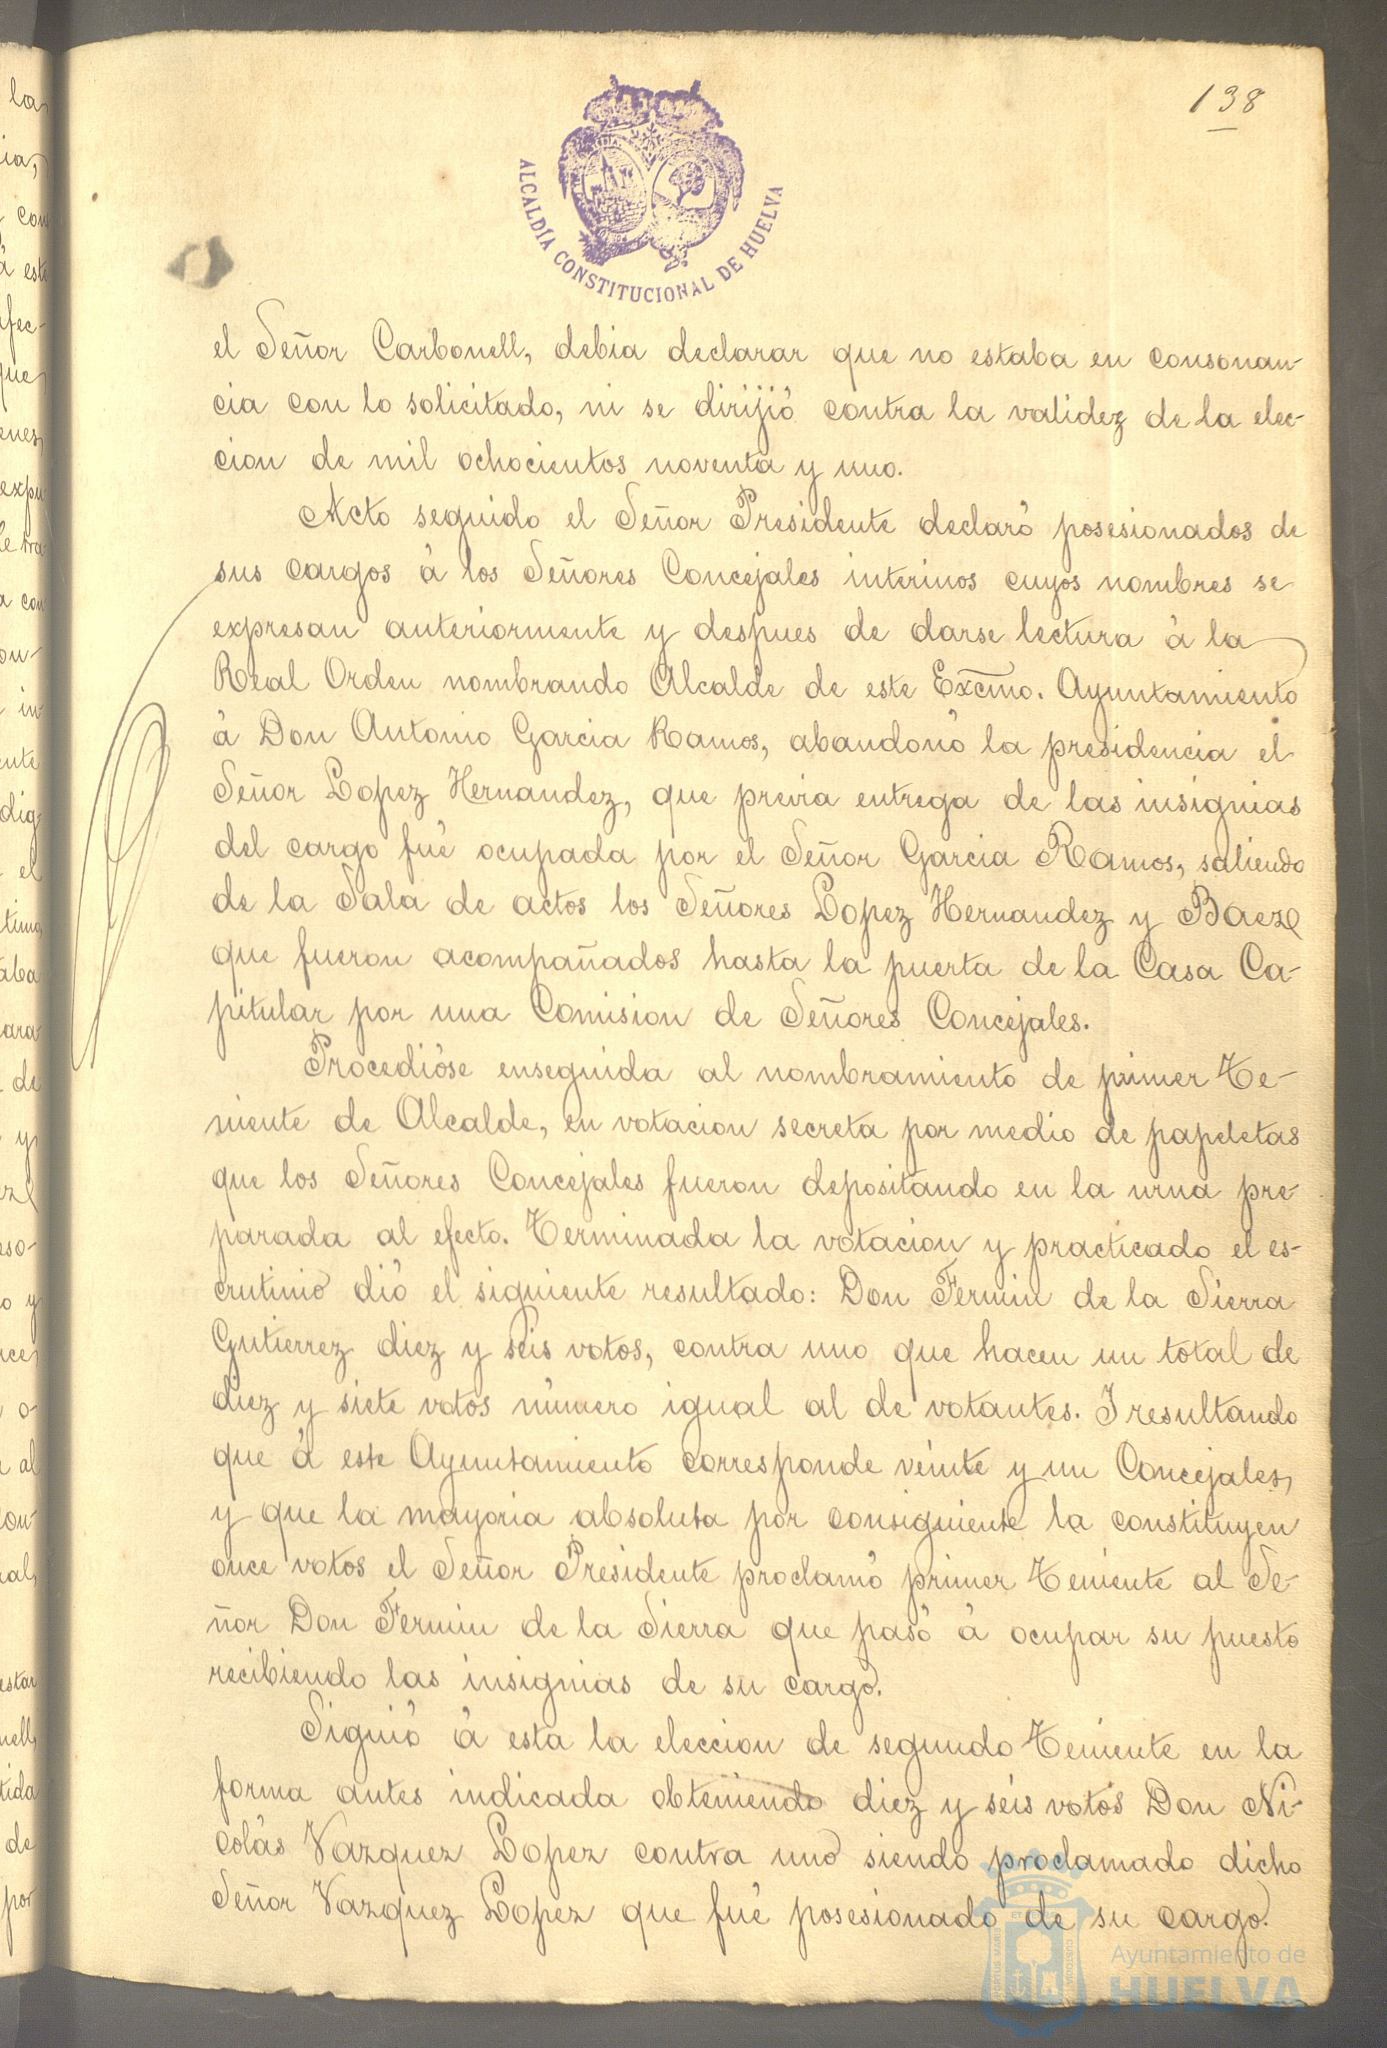 138
ALCALDÍA CONSTITUCIONAL DE HUELVA
el Señor Carbonell, debia declarar que no estaba en consonan-
cia con lo solicitado, ni se dirijió contra la validez de la elec-
cion de mil ochocientos noventa y uno.
Acto seguido el Señor Presidente declaró posesionados de
sus cargos á los Señores Concejales interinos cuyos nombres se
expresan anteriormente y despues de darse lectura á la
Real Orden nombrando Alcalde de este Excmo. Ayuntamiento
á Don Antonio Garcia Ramos, abandonó la presidencia el
Señor Lopez Hernandez, que previa entrega de las insignias
del cargo fué ocupada por el Señor Garcia Ramos, saliendo
de la Sala de actos los Señores Lopez Hernandez y Baez
que fueron acompañados hasta la puerta de la Casa Ca-
pitular por una Comision de Señores Concejales.
Procedióse enseguida al nombramiento de primer Te-
niente de Alcalde, en votacion secreta por medio de papeletas
que los Señores Concejales fueron depositando en la urna pre-
parada al efecto. Terminada la votacion y practicado el es-
crutinio dió el siguiente resultado: Don Fermin de la Sierra
Gutierrez diez y seis votos, contra uno que hacen un total de
diez y siete votos número igual al de votantes. I resultando
que á este Ayuntamiento corresponde veinte y un Concejales,
y que la mayoria absoluta por consiguiente la constituyen
once votos el Señor Presidente proclamó primer Teniente al Se-
ñor Don Fermin de la Sierra que pasó á ocupar su puesto
recibiendo las insignias de su cargo.
Siguió á esta la eleccion de segundo Teniente en la
forma antes indicada obteniendo diez y seis votos Don Ni-
colás Vazquez Lopez contra uno siendo proclamado dicho
Señor Vazquez Lopez que fué posesionado de su cargo.
Ayuntamiento de
HUELVA